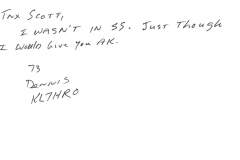 TNX SCOTT,
I WASN'T IN SS. JUST THOUGH
I WOULD GIVE YOU AK.
73
DENNIS
KL7HRO